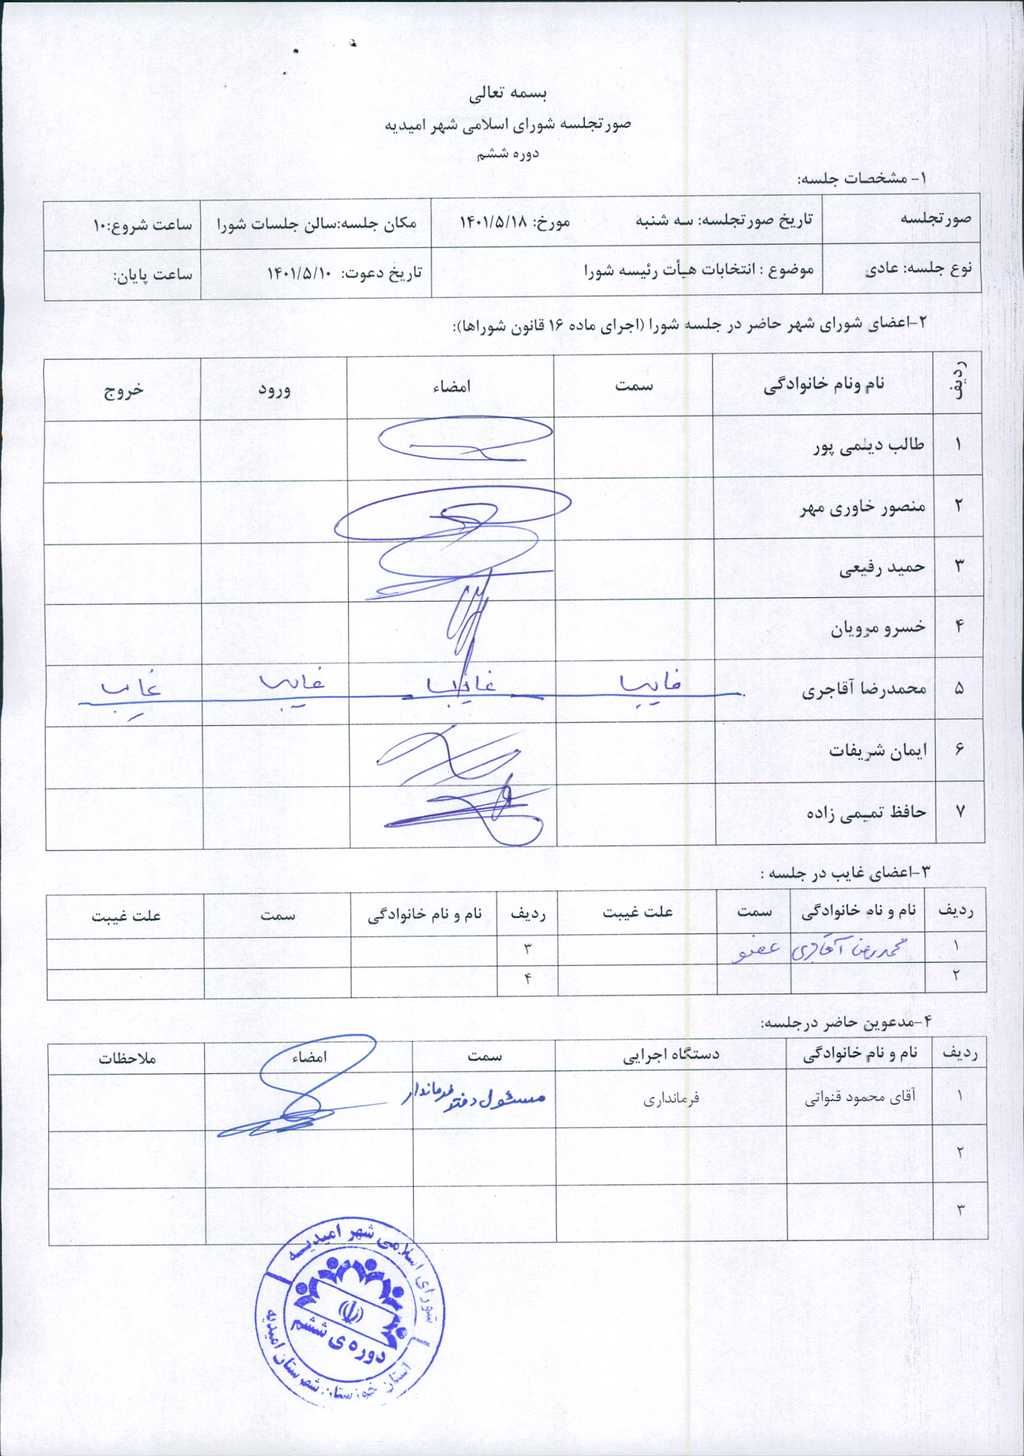 بسمه تعالی
صورتجلسه شورای اسلامی شهر امیدیه
دوره ششم
۱- مشخصات جلسه:
صورتجلسه تاریخ صورتجلسه: سه شنبه مورخ: ۱۴۰۱/۵/۱۸ مکان جلسه:سالن جلسات شورا ساعت شروع:۱۰
نوع جلسه: عادی موضوع : انتخابات هیأت رئیسه شورا تاریخ دعوت: ۱۴۰۱/۵/۱۰ ساعت پایان:
۲-اعضای شورای شهر حاضر در جلسه شورا (اجرای ماده ۱۶ قانون شوراها):
ردیف نام ونام خانوادگی سمت امضاء ورود خروج
۱ طالب دیلمی پور
۲ منصور خاوری مهر
۳ حمید رفیعی
۴ خسرو مرویان
۵ محمدرضا آقاجری غایب غایب غایب غایب
۶ ایمان شریفات
۷ حافظ تمیمی زاده
۳-اعضای غایب در جلسه :
ردیف نام و نام خانوادگی سمت علت غیبت ردیف نام و نام خانوادگی سمت علت غیبت
۱ محمدرضا آقاجری عضو ۳
۲ ۴
۴-مدعوین حاضر درجلسه:
ردیف نام و نام خانوادگی دستگاه اجرایی سمت امضاء ملاحظات
۱ آقای محمود قنواتی فرمانداری مسئول دفتر فرماندار
۲
۳
شورای اسلامی شهر امیدیه
دوره ی ششم
استان خوزستان شهرستان امیدیه